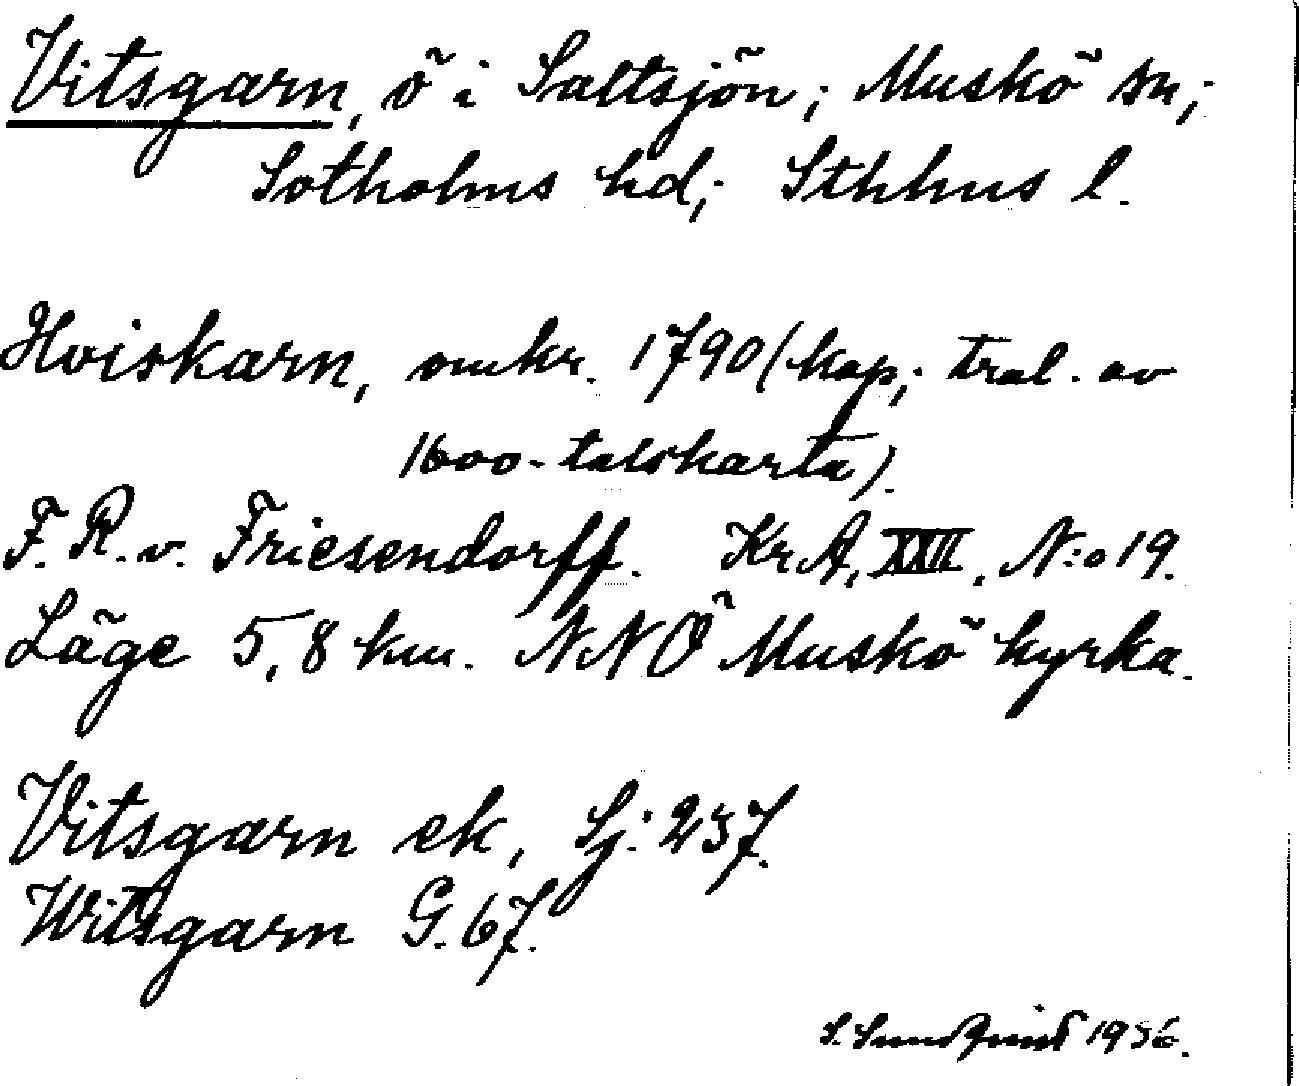 Vitsgarn, ö i Saltsjön; Muskö sn;
Sotholms hd; Sthlms l.
Hviskarn, omkr. 1790 (kop; tral. av
1600-talskarta).
F. R. v. Friesendorff. KrA, XXII, N:o 19.
Läge 5,8 km. NNÖ Muskö kyrka.
Vitsgarn ek, Sj: 237.
Witsgarn G. 67.
S. Sundqvist 1936.